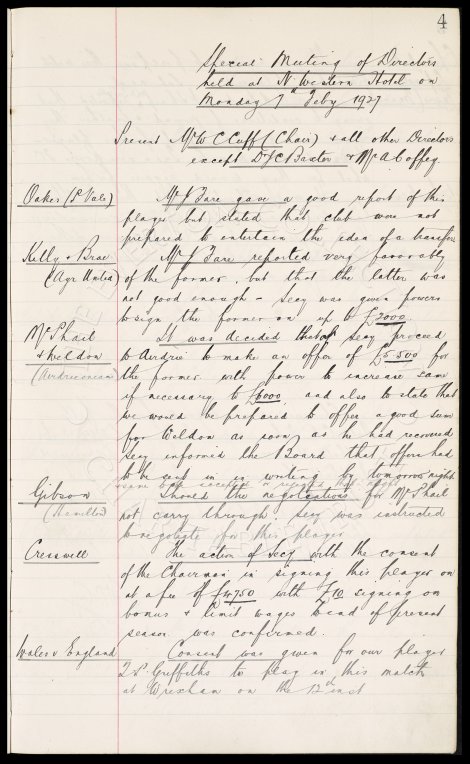 4
Special Meeting of Directors
held at N Western Hotel on
Monday 7th Feby 1927
Present Mr W C Cuff (Chair) & all other Directors
except Dr J C Baxter & Mr A Coffey.
Oakes (P. Vale) Mr J Fare gave a good report of this
player but stated that club were not
prepared to entertain the idea of a transfer
Kelly & Brae Mr J Fare reported very favorably
(Ayr United) of the former, but that the latter was
not good enough - secy was given powers
to sign the former on up to £2000.
McPhail It was decided that secy proceed
& Weldon to Airdrie to make an offer of £5.500 for
(Airdrieonians) the former with power to increase same
if necessary to £6000 and also to state that
we would be prepared to offer a good sum
for Weldon as soon as he had recovered
secy informed the Board that offers had
to be sent in in writing by tomorrow night
Gibson Should the negotiations for McPhail
(Hamilton) not carry through, secy was instructed
to negotiate for this player
Cresswell The action of Secy with the consent
of the Chairman in signing this player on
at a fee of £4750 with £10 signing on
bonus & limit wages to end of present
season was confirmed.
Wales v England Consent was given for our player
Griffiths to play in this match
at Wrexham on the 12th inst